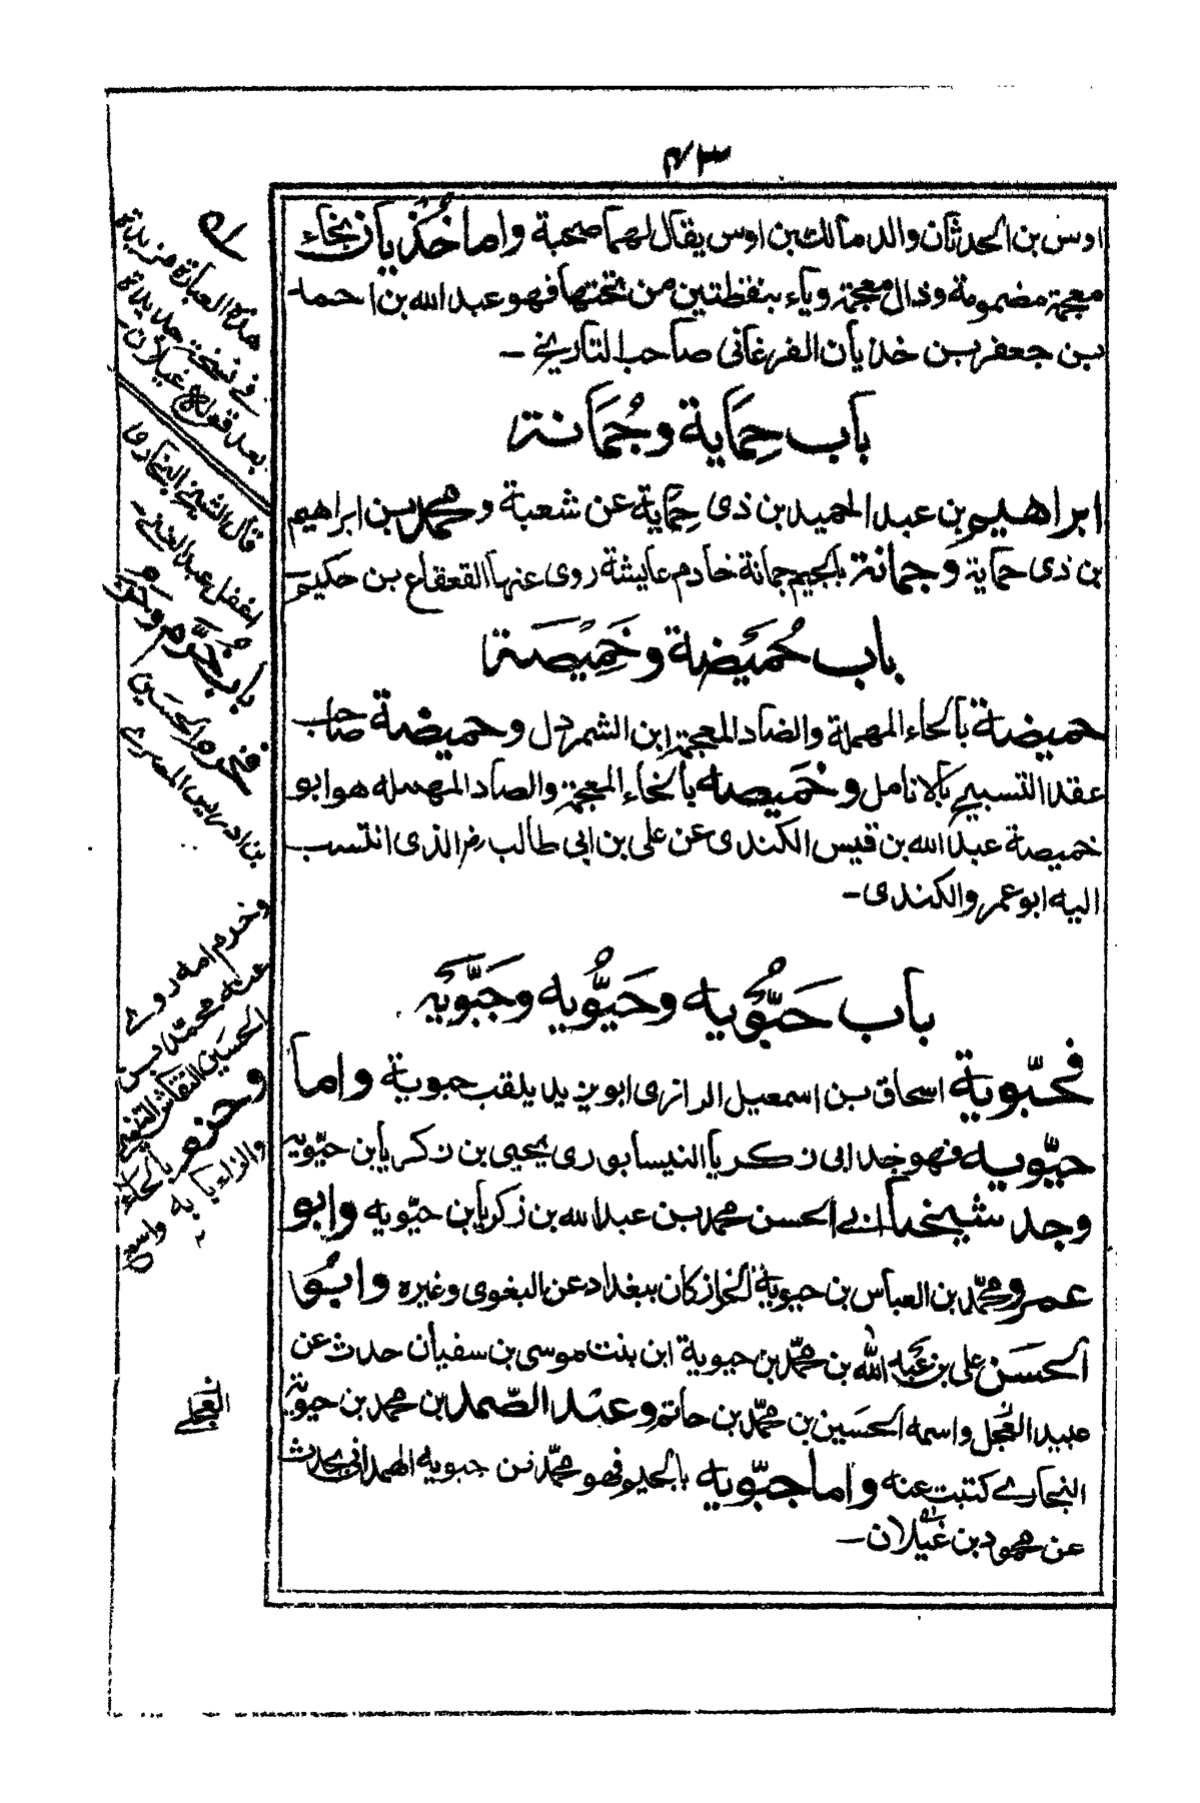 ٤٣
اوس بن الحدثان والد مالك بن اوس يقال لهما صحبة واما خُذيان بخاء
معجمة مضمومة وذال معجمة وياء بنقطتين من تحتها فهو عبد الله بن احمد
بن جعفر بن خذيان الفرغانى صاحب التاريخ ـ
باب حِمَاية وجُمَانة
ابراهيم بن عبد الحميد بن ذى حِمَاية عن شعبة ومحمد بن ابراهيم
بن ذى حماية وجمانة بالجيم جمانة خادم عايشة روى عنها القعقاع بن حكيم
باب حُمَيضة وخَمِيصَة
حميضة بالحاء المهملة والضاد المعجمة ابن الشمردل وحميضة صاحب
عقد التسبيح بالانامل وخَميصه بالخاء المعجمة والصاد المهمله هو ابو
خميصة عبد الله بن قيس الكندى عن على بن ابى طالب رض الذى انتسب
اليه ابو عمر والكندى ـ
باب حَبُّويه وحَيُّويه وجَبُّويَه
فحبّوية اسحاق بن اسمعيل الرازى ابو يزيد يلقب حبوية واما
حيّويه فهو جد ابى زكريا النيسابورى يحيى بن زكريا بن حيّويه
وجد شيخنا ابى الحسن محمد بن عبد الله بن زكريا بن حيّويه وابو
عمرو محمّد بن العباس بن حيوية الخزاز كان ببغداد عن البغوى وغيره وابو
الحسَن على بن عبد الله بن محمّد بن حيوية ابن بنت موسى بن سفيان حدث عن
عبيد العجل واسمه الحسين بن محمّد بن حاتم وعبد الصّمد بن محمد بن حيويّة
البخارى كتبت عنه واما جبّويه بالجيم فهو محمّد بن جبويه الهمدانى يحدث
عن محمود بن غيلان ـ
هذه العبارة مزيدة
فى نسخة جديدة
بعد قوله غيلان ـ
قال الشيخ البخارى
اغفل عبد الغنى ـ
باب خُرَّم وحزم
فخرم الحسَين
بن ادريس المصرى
وخرم امه روى
عنه محمّد بن
الحسين النقاش
وحزم بالحاء
والزاء
العجل